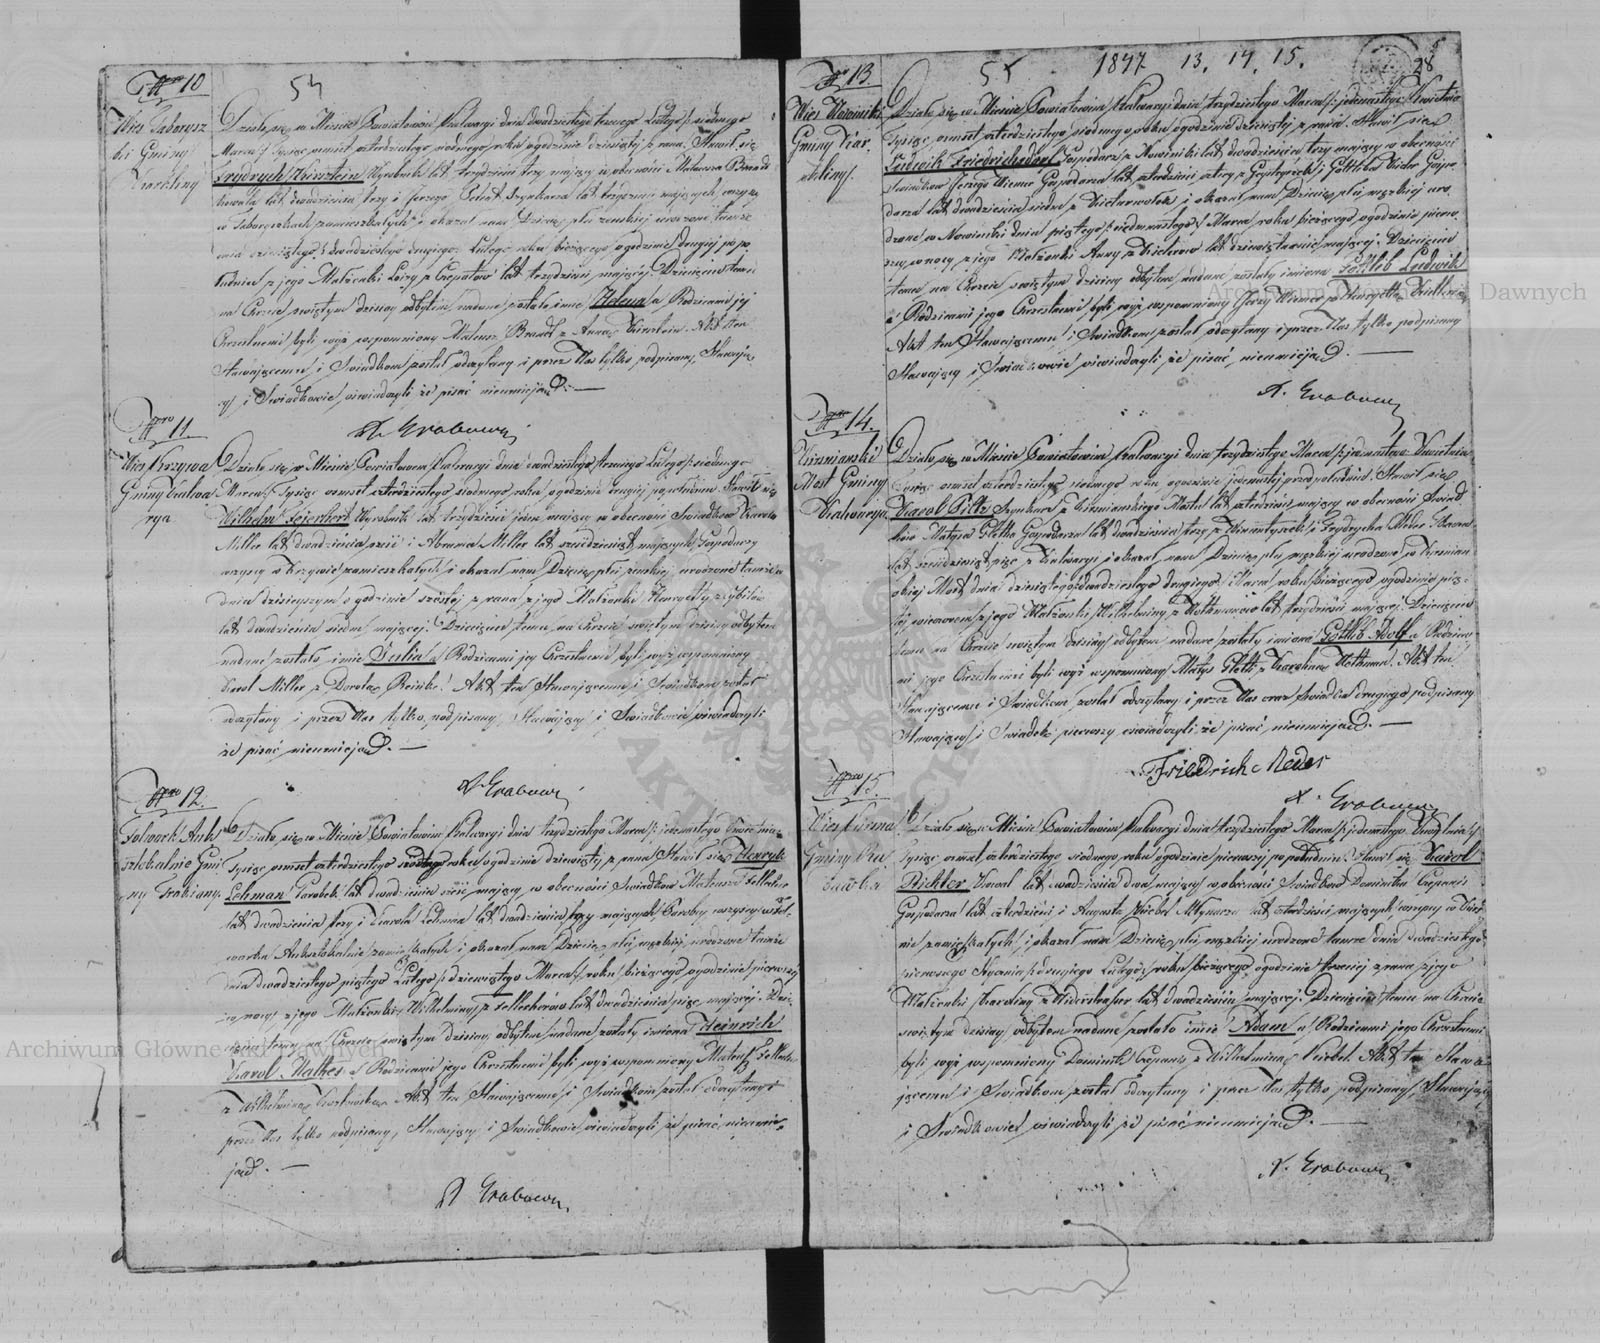 Nro 10
54
Wieś Taborysz
ki Gminy
Kirchliny
Działo się w Mieście Powiatowem Kalwaryi dnia dwudziestego trzeciego Lutego /: siódmego
Marca :/ Tysiąc ośmset czterdziestego siódmego roku o godzinie dziesiątej z rana. Stawił się
Frydrych Kirsztein Wyrobnik lat trzydzieści trzy mający w obecności Mateusza Brandt
Kowala lat dwadzieścia trzy i Jerzego Szynkarza lat trzydzieści mających, wszyscy
w Taboryszkach zamieszkałych i okazał nam Dziecię płci żeńskiej urodzone tamże
dnia dwudziestego drugiego Lutego roku bieżącego o godzinie drugiej po po
łudniu z jego Małżonki Luizy z lat trzydzieści mającej. Dziecięciu temu
na Chrzcie świętym dzisiaj odbytem nadane zostało imie Helena a Rodzicami jej
Chrzestnemi byli wyż wspomniony Mateusz Brandt z Anną Kirsztein. Akt ten
Stawającemu i Świadkom został odczytany i przez Nas tylko podpisany, Stawają
cy i Świadkowie oświadczyli że pisać nieumieją. —
A. Grabowy
Nro 11.
Wieś Krzywa
Gminy Kalwa
rya
Działo się w Mieście Powiatowem Kalwaryi dnia dwudziestego trzeciego Lutego /: siódmego
Marca :/ Tysiąc ośmset czterdziestego siódmego roku o godzinie drugiej popołudniu. Stawił się
Wilhelm Feierhert Wyrobnik lat trzydzieści jeden mający w obecności Świadków Karola
Miller lat dwadzieścia sześć i Abrama Miller lat sześćdziesiąt mających, Gospodarzy
wszyscy w Krzywie zamieszkałych i okazał nam Dziecię płci żeńskiej urodzone tamże
dnia dzisiejszym o godzinie szóstej z rana z jego Małżonki Henryety z
lat dwadzieścia siedm mającej. Dziecięciu temu na Chrzcie świętym dzisiaj odbytem
nadane zostało imie Julia a Rodzicami jej Chrzestnemi byli wyż wspomniony
Karol Miller z Dorotą Reinke. Akt ten Stawającemu i Świadkom został
odczytany i przez Nas tylko podpisany, Stawający i Świadkowie oświadczyli
że pisać nieumieją. —
A. Grabowy
Nro 12.
Folwark Auksz
tokalnie Gmi
ny Trakiany.
Działo się w Mieście Powiatowem Kalwaryi dnia trzydziestego Marca /: jedenastego Kwietnia :/
Tysiąc ośmset czterdziestego siódmego roku o godzinie dziewiątej z rana. Stawił się Henryk
Lehman Parobek lat dwadzieścia sześć mający w obecności Świadków Mateusza
lat dwadzieścia trzy i Karola Lehman lat dwadzieścia trzy mających, Parobcy wszyscy w Fol
warku Auksztokalnie zamieszkałych i okazał nam Dziecię płci męzkiej urodzone tamże
dnia dwudziestego piątego Lutego /: dziewiątego Marca :/ roku bieżącego o godzinie pierwszej
w nocy z jego Małżonki Wilhelminy z lat dwadzieścia pięć mającej. Dzie
cięciu temu na Chrzcie świętym dzisiaj odbytem nadane zostały imiona Heinrich
Karol Mathes a Rodzicami jego Chrzestnemi byli wyż wspomniony Mateusz
z Wilhelminą Akt ten Stawającemu i Świadkom został odczytany i
przez Nas tylko podpisany, Stawający i Świadkowie oświadczyli że pisać nieumie
ją. —
A. Grabowy
Nro 13.
55
1847 13. 14. 15.
28
Wieś Nowiniki
Gminy Kir
chliny.
Działo się w Mieście Powiatowem Kalwaryi dnia trzydziestego Marca /: jedenastego Kwietnia
Tysiąc ośmset czterdziestego siódmego roku o godzinie dziewiątej z rana. Stawił się
Ludwik Gospodarz z Nowinik lat dwadzieścia trzy mający w obecności
świadków Jerzego Wiemer Gospodarza lat czterdzieści cztery z i Gottlieba Gospo
darza lat dwadzieścia siedm z i okazał nam Dziecię płci męzkiej uro
dzone w Nowiniki dnia piątego /: siedmnastego :/ Marca roku bieżącego o godzinie pierw
szej w nocy z jego Małżonki Anny z lat dziewiętnaście mającej. Dziecięciu
temu na Chrzcie świętym dzisiaj odbytem nadane zostały imiona Gottlib Ludwik
a Rodzicami jego Chrzestnemi byli wyż wspomniony Jerzy Wiemer z Henryettą
Akt ten Stawającemu i Świadkom został odczytany i przez Nas tylko podpisany
Stawający i Świadkowie oświadczyli że pisać nieumieją. —
A. Grabowy
Nro 14.
Kirśniański
Most Gminy
Krasnowo
Działo się w Mieście Powiatowem Kalwaryi dnia trzydziestego Marca /: jedenastego Kwietnia
Tysiąc ośmset czterdziestego siódmego roku o godzinie jedenastej przed południem. Stawił się
Karol Piltz Szynkarz z Kirśniańskiego Mostu lat czterdzieści mający w obecności Świad
ków Matysa Glettka Gospodarza lat dwadzieścia trzy z i Frydrycha Meder
lat sześćdziesiąt pięć z Kalwaryi i okazał nam Dziecię płci męzkiej urodzone w Kirśniań
skiej Most dnia dziesiątego /: dwudziestego drugiego :/ Marca roku bieżącego o godzinie pią
tej wieczorem z jego Małżonki Wilhelminy z lat trzydzieści mającej. Dziecięciu
temu na Chrzcie świętym dzisiaj odbytem nadane zostały imiona Gottlib Adolf a Rodzica
mi jego Chrzestnemi byli wyż wspomniony Matys Glettk z Karoliną Akt ten
Stawającemu i Świadkom został odczytany i przez Nas oraz świadka drugiego podpisany
Stawający i Świadek pierwszy oświadczyli że pisać nieumieją. —
Friedrich Meder
A. Grabowy
Nro 15.
Wieś Kirsna
Gminy Ru
dawka
Działo się w Mieście Powiatowem Kalwaryi dnia trzydziestego Marca /: jedenastego Kwietnia :/
Tysiąc ośmset czterdziestego siódmego roku o godzinie pierwszej po południu. Stawił się Karol
Richter Kowal lat dwadzieścia dwa mający w obecności Świadków Dominika
Gospodarza lat czterdzieści i Augusta Młynarza lat czterdzieści mających, wszyscy w Kirs
nie zamieszkałych, i okazał nam Dziecię płci męzkiej urodzone tamże dnia dwudziestego
pierwszego Stycznia /: drugiego Lutego :/ roku bieżącego o godzinie trzeciej z rana z jego
Małżonki Karoliny z lat dwadzieścia mającej. Dziecięciu temu na Chrzcie
świętym dzisiaj odbytem nadane zostało imie Adam a Rodzicami jego Chrzestnemi
byli wyż wspomniony Dominik z Wilhelminą Akt ten Stawa
jącemu i Świadkom został odczytany i przez Nas tylko podpisany, Stawający
i Świadkowie oświadczyli że pisać nieumieją. —
A. Grabowy
Archiwum Główne Akt Dawnych
Archiwum Główne Akt Dawnych